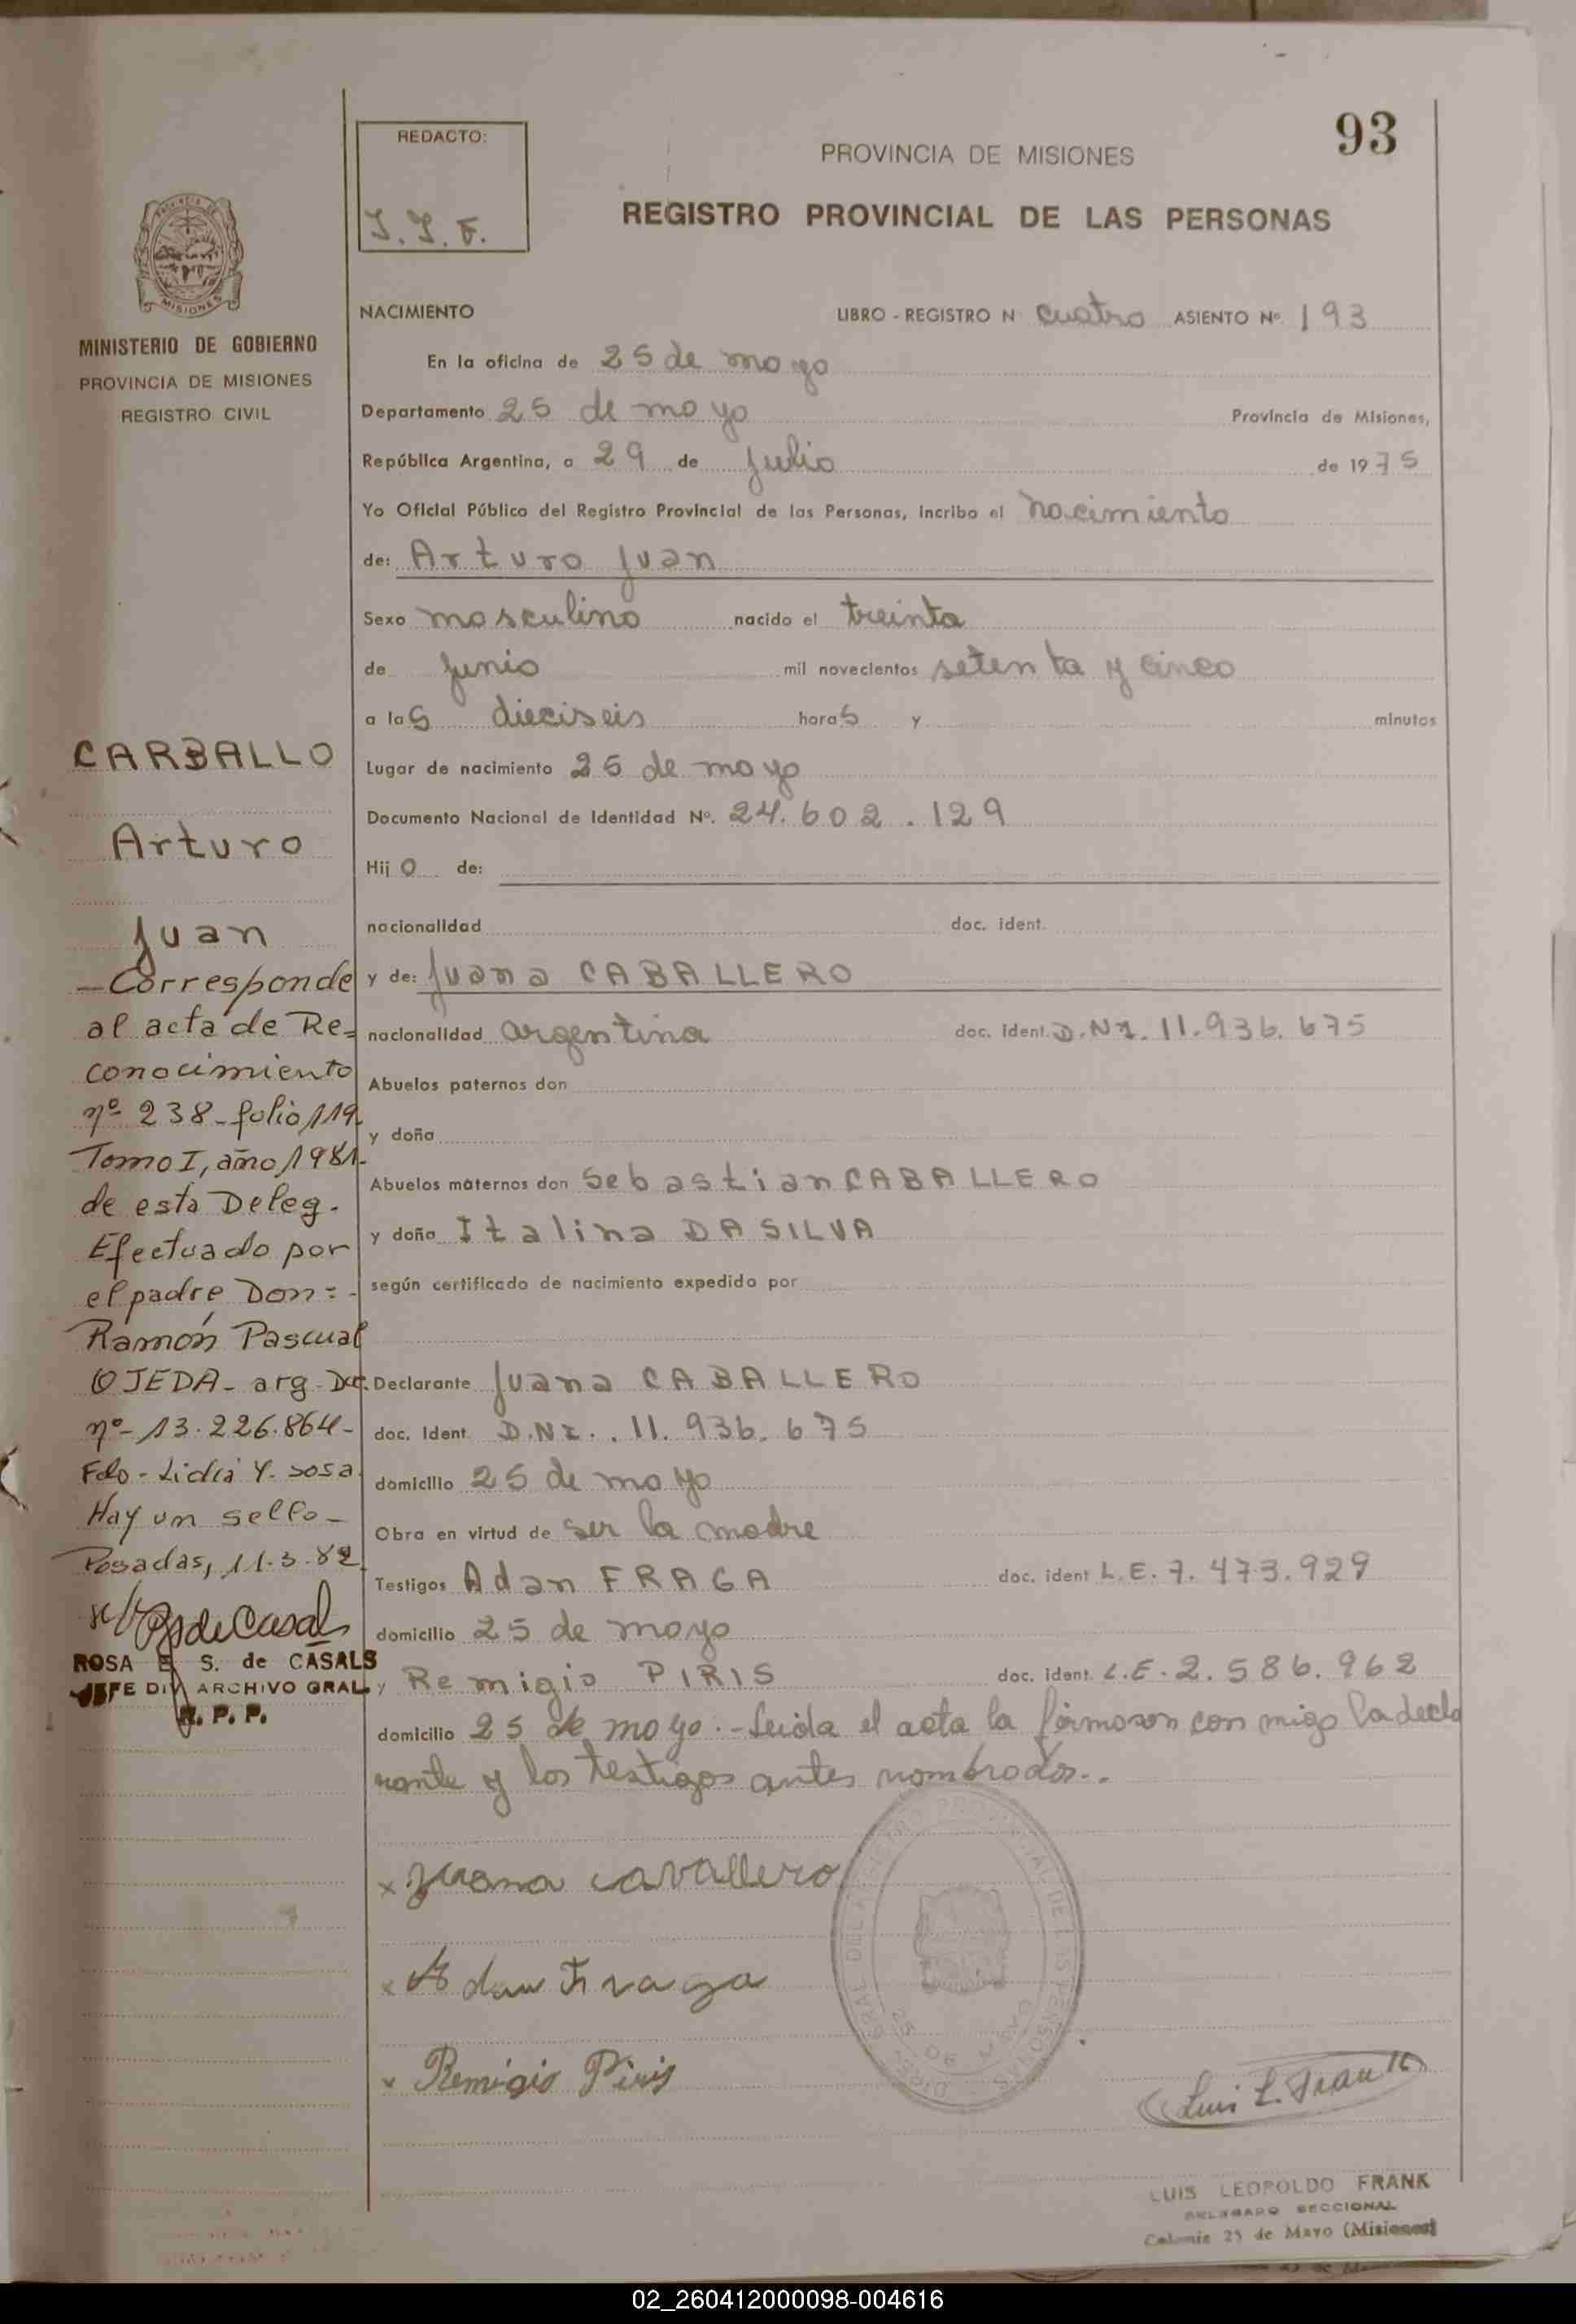 93
REDACTO:
PROVINCIA DE MISIONES
REGISTRO PROVINCIAL DE LAS PERSONAS
MISIONES
MINISTERIO DE GOBIERNO
PROVINCIA DE MISIONES
REGISTRO CIVIL
NACIMIENTO LIBRO - REGISTRO N cuatro ASIENTO Nº. 193
En la oficina de 25 de mayo
Departamento 25 de mayo Provincia de Misiones,
República Argentina, a 29 de Julio de 1975
Yo Oficial Público del Registro Provincial de las Personas, incribo el nacimiento
de: Arturo Juan
Sexo masculino nacido el treinta
de Junio mil novecientos setenta y cinco
a las dieciseis horas y minutos
Lugar de nacimiento 25 de mayo
Documento Nacional de Identidad Nº. 24.602.129
Hijo de:
nacionalidad doc. ident.
y de: Juana CABALLERO
nacionalidad argentina doc. ident. D.NI. 11.936.675
Abuelos paternos don
y doña
Abuelos maternos don Sebastian CABALLERO
y doña Italina DA SILVA
según certificado de nacimiento expedido por
Declarante Juana CABALLERO
doc. ident. D.NI.. 11.936.675
domicilio 25 de mayo
Obra en virtud de ser la madre
Testigos Adan FRAGA doc. ident L.E. 7.473.929
domicilio 25 de mayo
y Remigio PIRIS doc. ident. L.E. 2.586.962
domicilio 25 de mayo.- Leida el acta la firmaron con migo la decla
rante y los testigos antes nombrados..
CARBALLO
Arturo
Juan
—Corresponde
al acta de Re=
conocimiento
nº 238-folio 119-
Tomo I, año 1981-
de esta Deleg.
Efectuado por
el padre Don=-
Ramón Pascual
OJEDA- arg-Doc.
nº- 13.226.864-
Fdo- Lidia Y. Sosa
Hay un sello-
Posadas, 11.3.82
ROSA E. S. de CASALS
JEFE DIV ARCHIVO GRAL
R. P. P.
x Juana cavallero
x Adan Fraga
x Remigio Piris
25 DE MAYO
Luis L. Frank
LUIS LEOPOLDO FRANK
DELEGADO SECCIONAL
Colonia 25 de Mayo (Misiones)
02_260412000098-004616